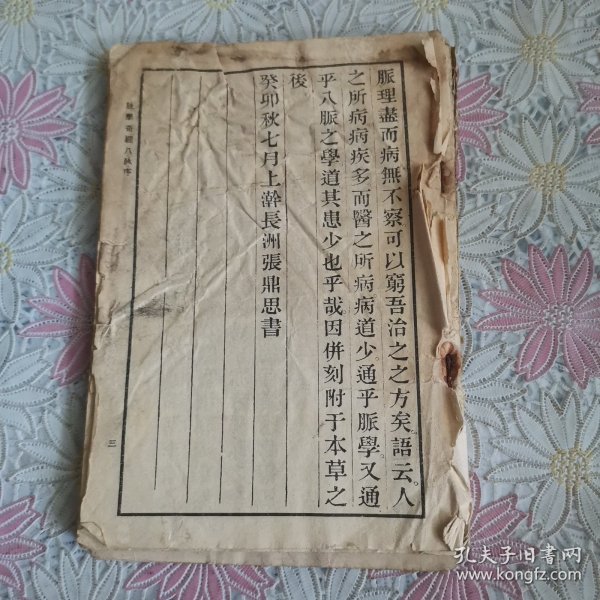 脈理盡而病無不察可以窮吾治之之方矣。語云。人
之所病病疾多而醫之所病病道少。通乎脈學。又通
乎八脈之學道其患少也乎哉。因併刻附于本草之
後
癸卯秋七月上澣長洲張鼎思書
脈學奇經八脉序
三
孔夫子旧书网
www.kongfz.com